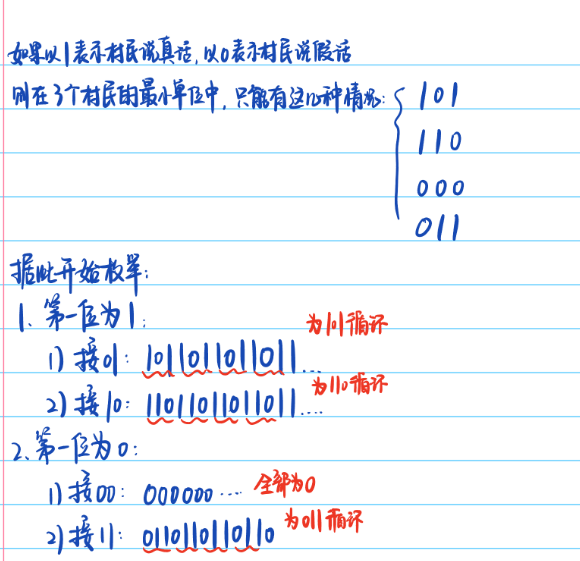 如果以1表示村民说真话,以0表示村民说假话
则在3个村民的最小单位中,只能有这几种情况:
101
110
000
011
据此开始枚举:
1、第一位为1:
1) 接01: 1011011011011... 为101循环
2) 接10: 11011011011011.... 为110循环
2、第一位为0:
1) 接00: 000000.... 全部为0
2) 接11: 0110110110110 为011循环